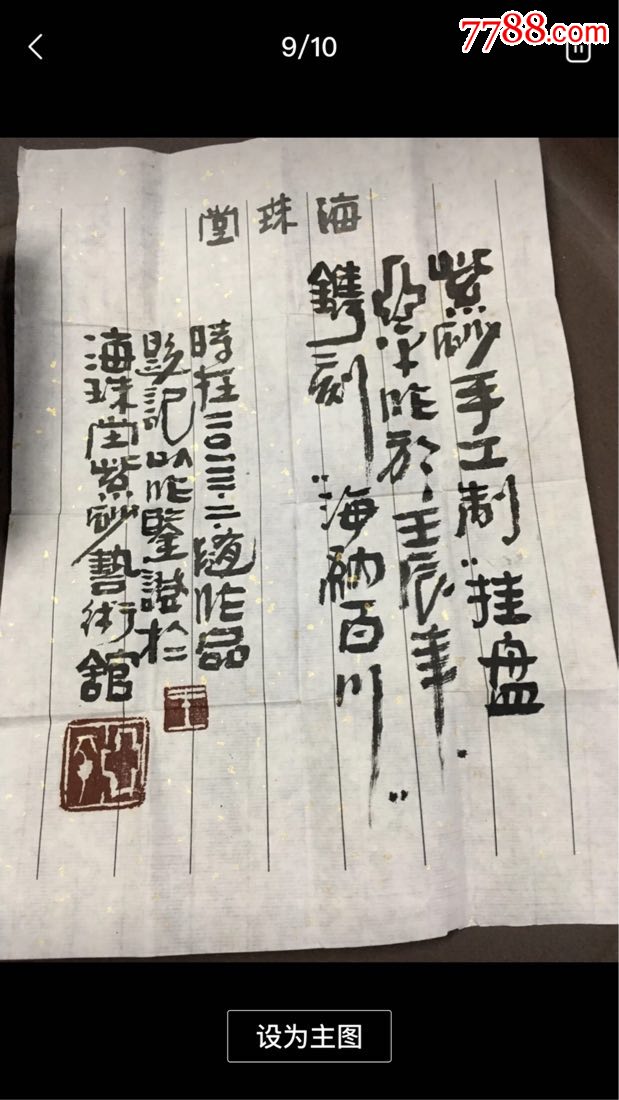 9/10
7788.com
海珠堂
紫砂手工制"挂盘"
作於·壬辰年
鐫刻"海納百川"
時在二〇一三·三隨作品
題記以作鑒證於
海珠堂紫砂藝術館
设为主图